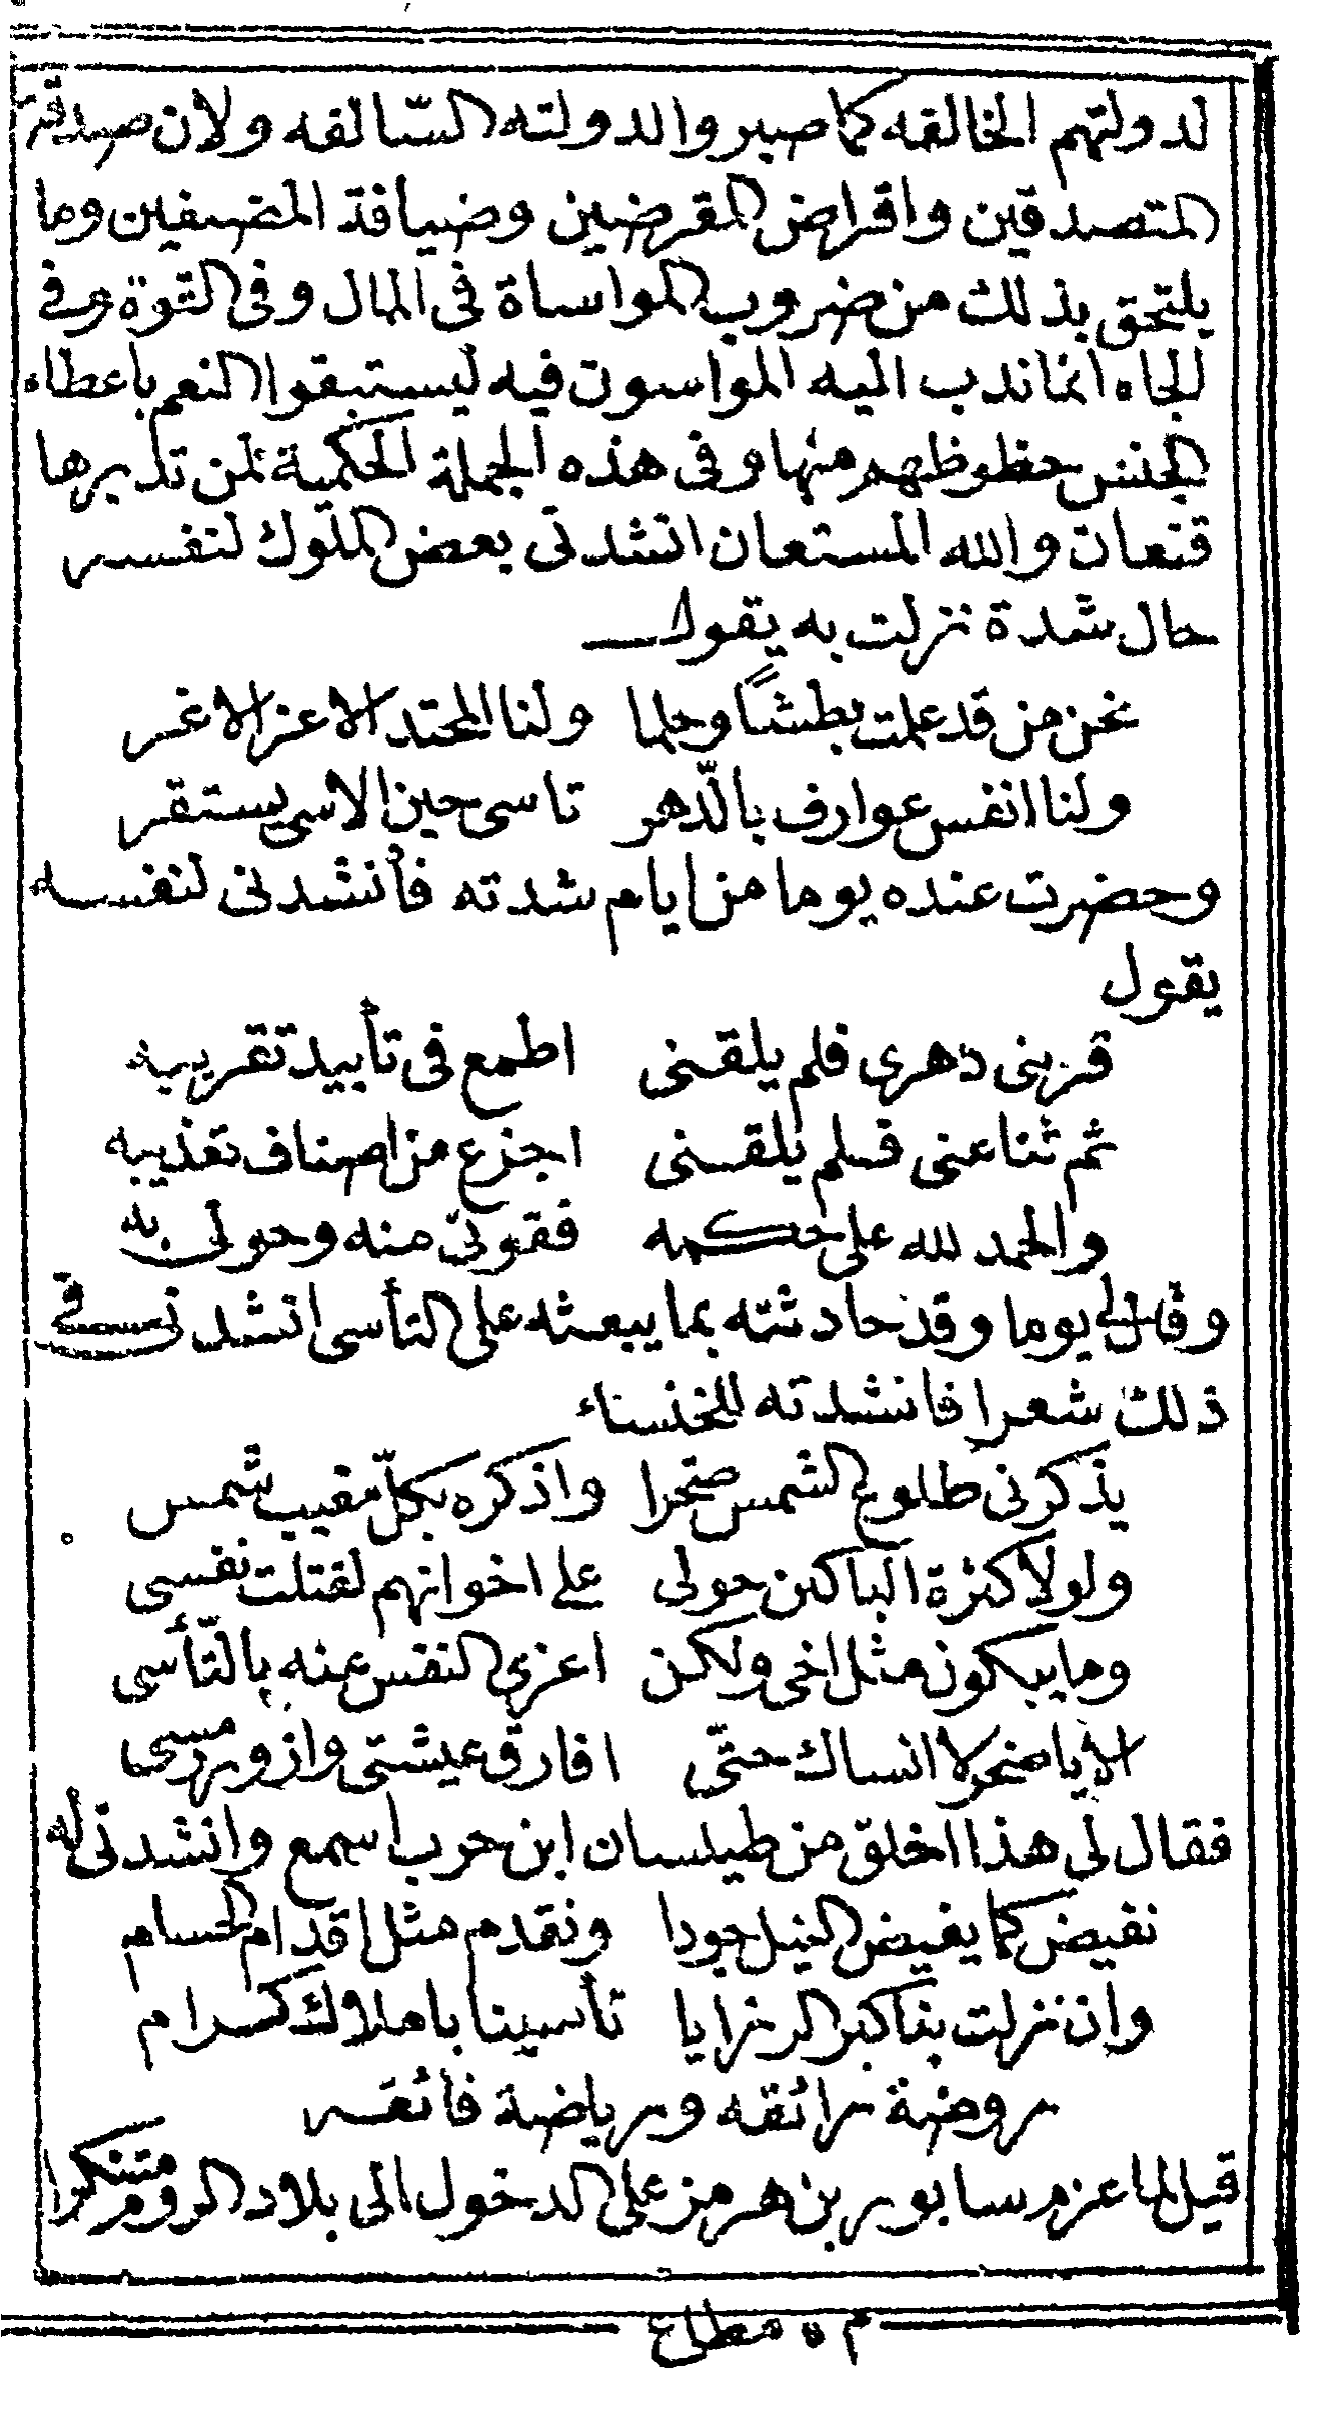 لدولتهم الخالفه كما صبروا لدولته السّالفه ولان صدقة
المتصدقين واقراض المقرضين وضيافة المضيفين وما
يلتحق بذلك من ضروب المواساة فى المال وفى القوة وفى
الجاه انما ندب اليه المواسون فيه ليستبقوا النعم باعطاء
الجنس حظوظهم منها وفى هذه الجملة الحكمية لمن تدبرها
قنعان والله المستعان انشدنى بعض الملوك لنفسه
حال شدة نزلت به يقول
نحن من قد علمت بطشًا وحلما ولنا المحتد الاعز الاغر
ولنا انفس عوارف بالدّهر تاسى حين الاسى يستقر
وحضرت عنده يوما من ايام شدته فأنشدنى لنفسه
يقول
قربنى دهرى فلم يلقنى اطمع فى تأبيد تقريبه
ثم ثنا عنى فلم يلقنى اجزع من اصناف تعذيبه
والحمد لله على حكمه فقوتى منه وحولى به
وقال لى يوما وقد حادثته بما يبعثه على التأسى انشدنى فى
ذلك شعرا فانشدته للخنساء
يذكرنى طلوع الشمس صخرا واذكره بكلّ مغيب شمس
ولولا كثرة الباكين حولى على اخوانهم لقتلت نفسى
وما يبكون مثل اخى ولكن اعزى النفس عنه بالتّأسى
الا يا صخر لا انساك حتّى افارق عيشتى وازور رمسى
فقال لى هذا اخلق من طيلسان ابن حرب اسمع وانشدنى له
نفيض كما يفيض النيل جودا ونقدم مثل اقدام الحسام
وان نزلت بنا كبر الرزايا تأسينا باملاك كرام
روضة رائقه ورياضة فائقه
قيل لما عزم سابور بن هرمز على الدخول الى بلاد الروم متنكرا
م ٥ مطاع